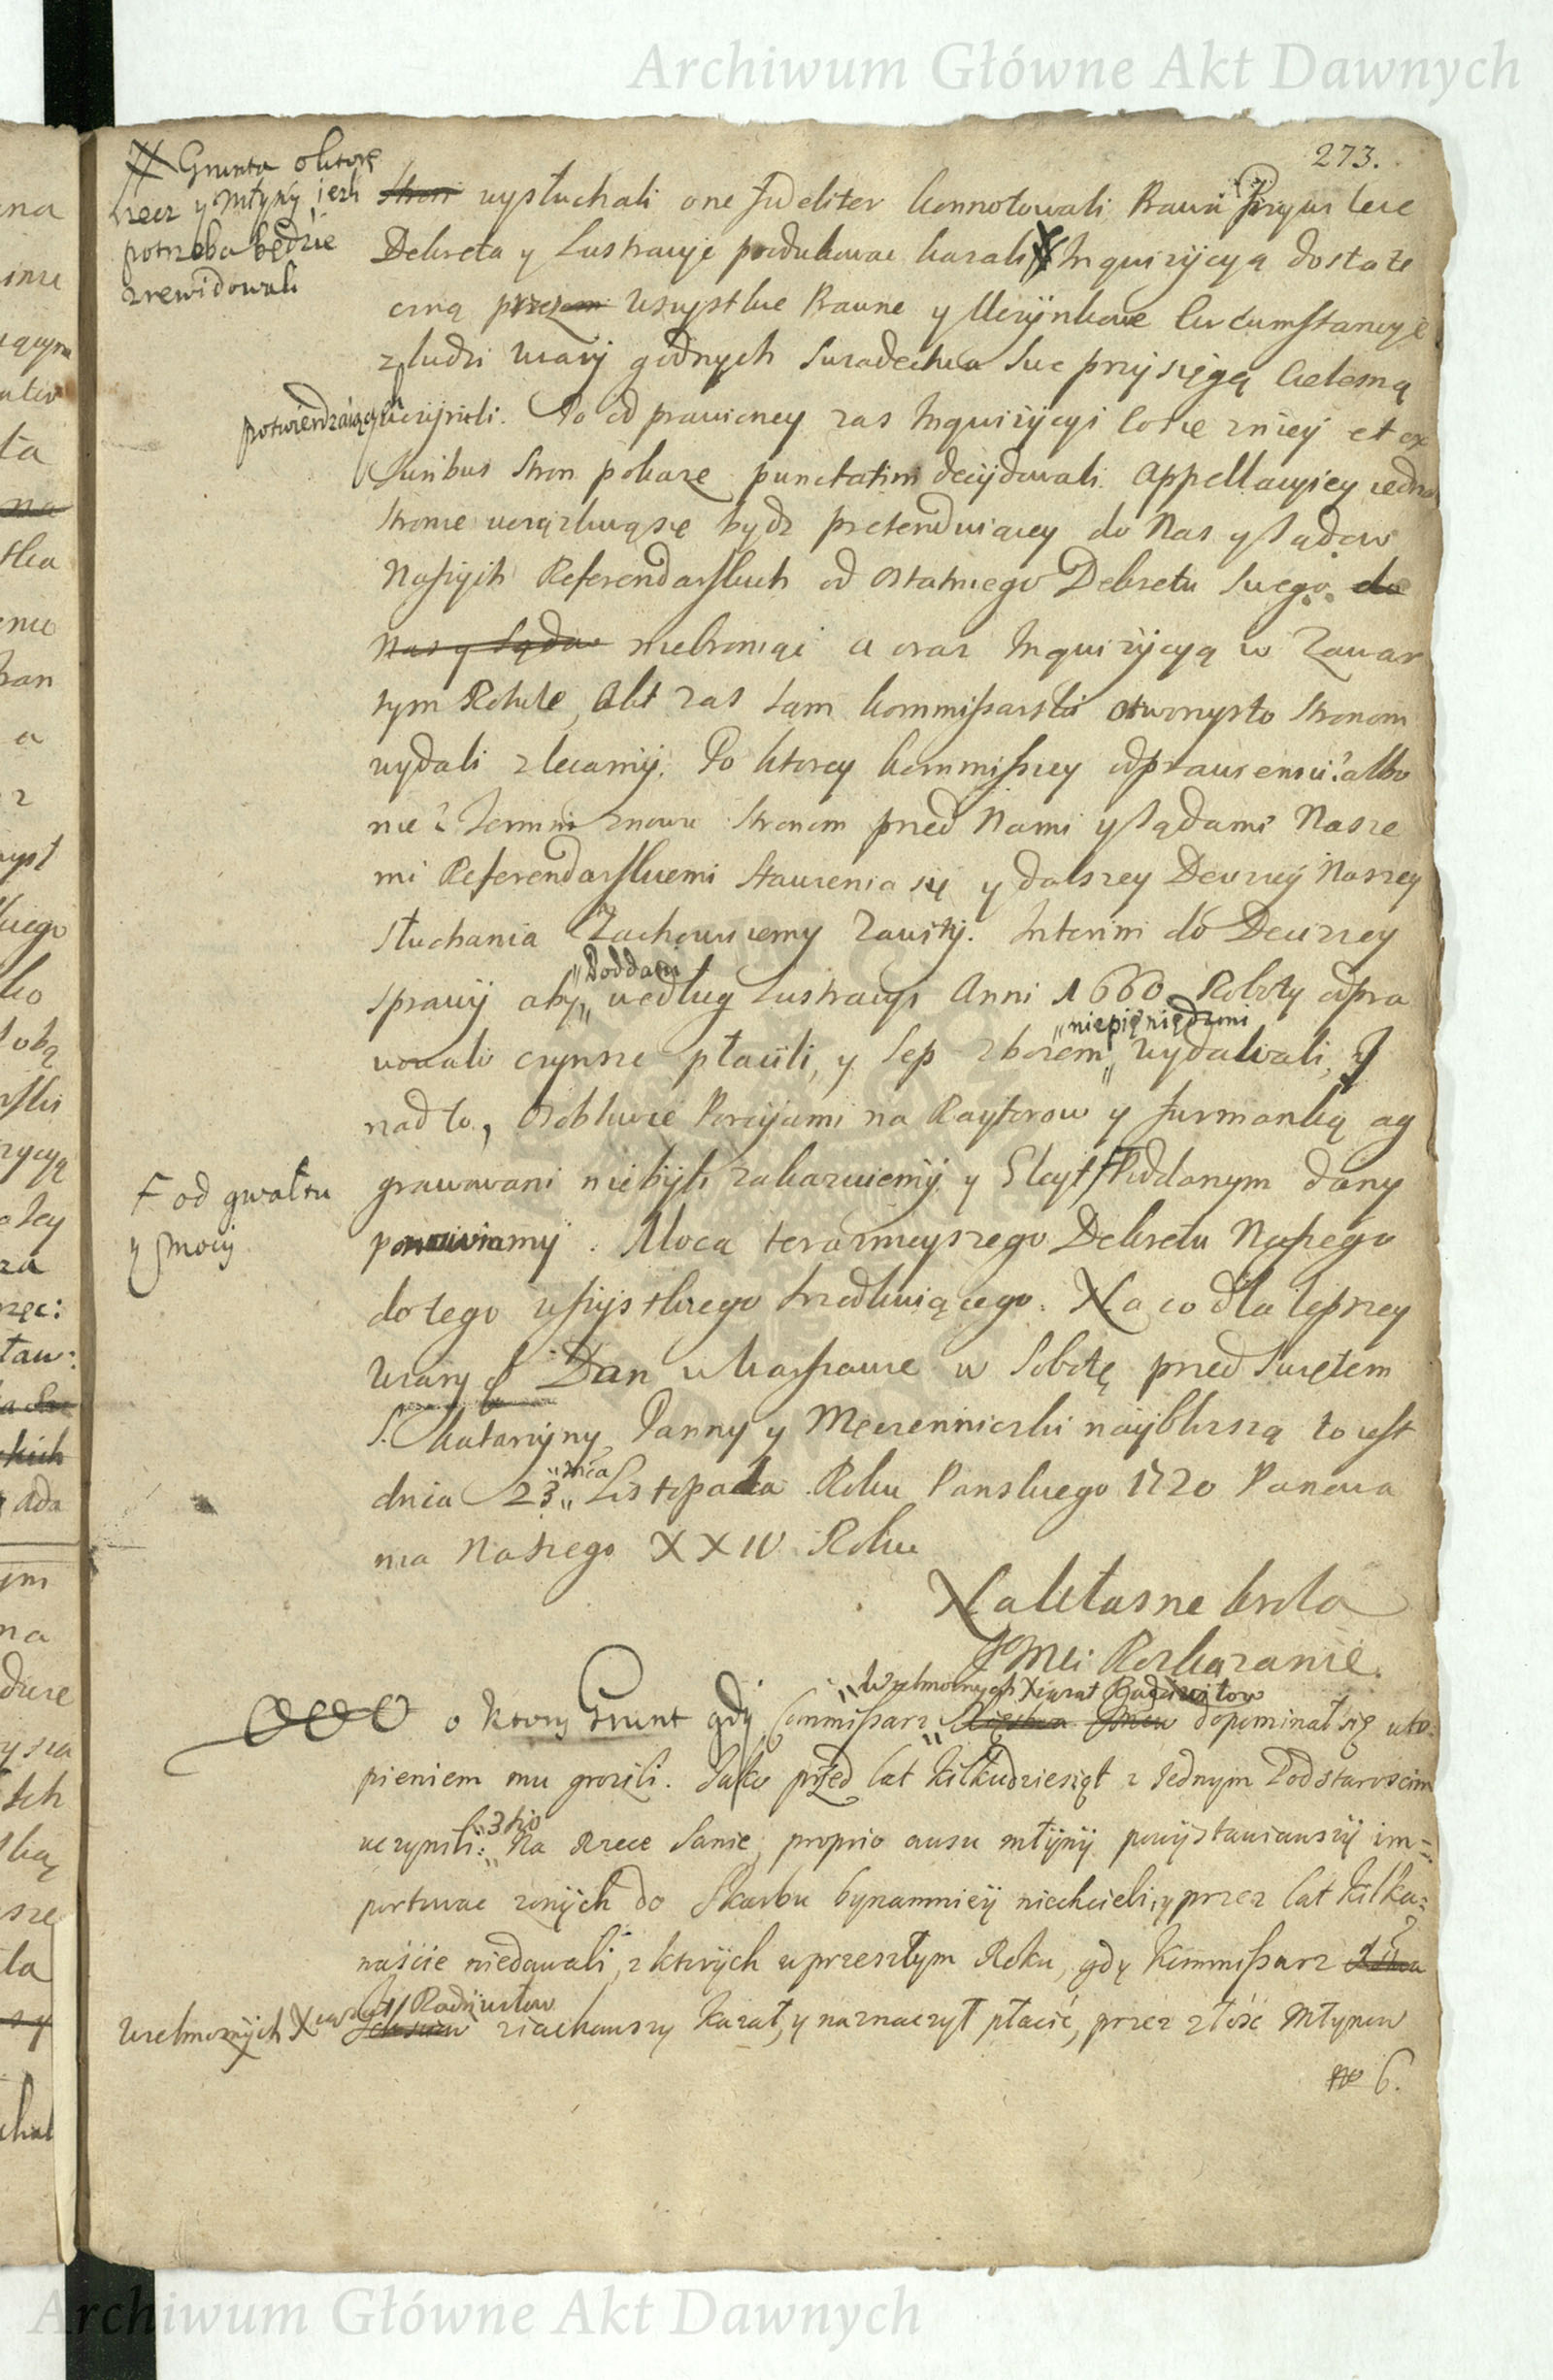 Archiwum Główne Akt Dawnych
273.
# Grunta o ktore
rzecz y Młyny jezli
potrzeba będzie
zrewidowali
Stron wysłuchali one fideliter konnotowali Prawa Przywileie
Dekreta y Lustracye produkowac kazali # Inquizycyą dostate
czną przez wszystkie Prawne y Uczynkowe Circumstancye
z ludzi wiary godnych swiadectwa swe przysięgą cielesną
potwierdzaiących uczynili. Po odprawioney zas Inquizycyi co się z niey et ex
Juribus Stron pokaze punctatim decydowali. Appellacyiey iedney
Stronie uciązliwą się bydz pretenduiącey do Nas y Sądow
Naszych Referendarskich od ostatniego Dekretu swego. do
Nas y Sądow niebroniąc a oraz Inquizycyą w Zawar
tym Rotule, Akt zas sam kommissarski otworzysto Stronom
wydali zlecamy. Po ktorey kommissiey odprawieniu? albo
nie? Termin znowu Stronom przed Nami y Sądami Nasze
mi Referendarskiemi Stawienia się y dalszey Decizyi Naszey
Słuchania Zachowuiemy Zawity. Interim do Decizey
Sprawy aby „Poddani„ według Lustracyi Anni 1660 Roboty odpra
wowali czynsze płacili, y Sep zbozem „niepięniędzmi„ wydawali, y
nad to, osobliwie Porcyami na Raytarow y furmanką ag
grawowani niebyli zakazuiemy y Gleyt F Poddanym dany
F od gwałtu
y mocy
ponawiamy. Mocą terazneyszego Dekretu Naszego
do tego wszystkiego
Na co dla lepszey
Wiary & Dan w Warszawie w Sobotę przed Swiętem
S. Katarzyny Panny y Męczenniczki nayblizszą to iest
dnia 23 „mca„ Listopada Roku Panskiego 1720 Panowa
nia Naszego XXIV Roku
Na Własne krola
JoMci Rozkazanie.
o ktory Grunt gdy Commissarz „Wielmoznych Xiazat Radziwiłow„ dopominał się uto-
pieniem mu grozili. Jako przed lat kilkudziesiąt z Jednym Podstaroscim
uczynili: „3tio„ Na Rzece Sanie, proprio ausu młyny powystawiawszy im=
portowac z onych do Skarbu bynamniey niechcieli, y przez lat kilka=
naście niedawali, z ktorych w przeszłym Roku, gdy Kommissarz
Wielmoznych Xiazat Radziwiłow ziachawszy kazał, y naznaczył płacić, przez złość Młynow
no 6.
Archiwum Główne Akt Dawnych